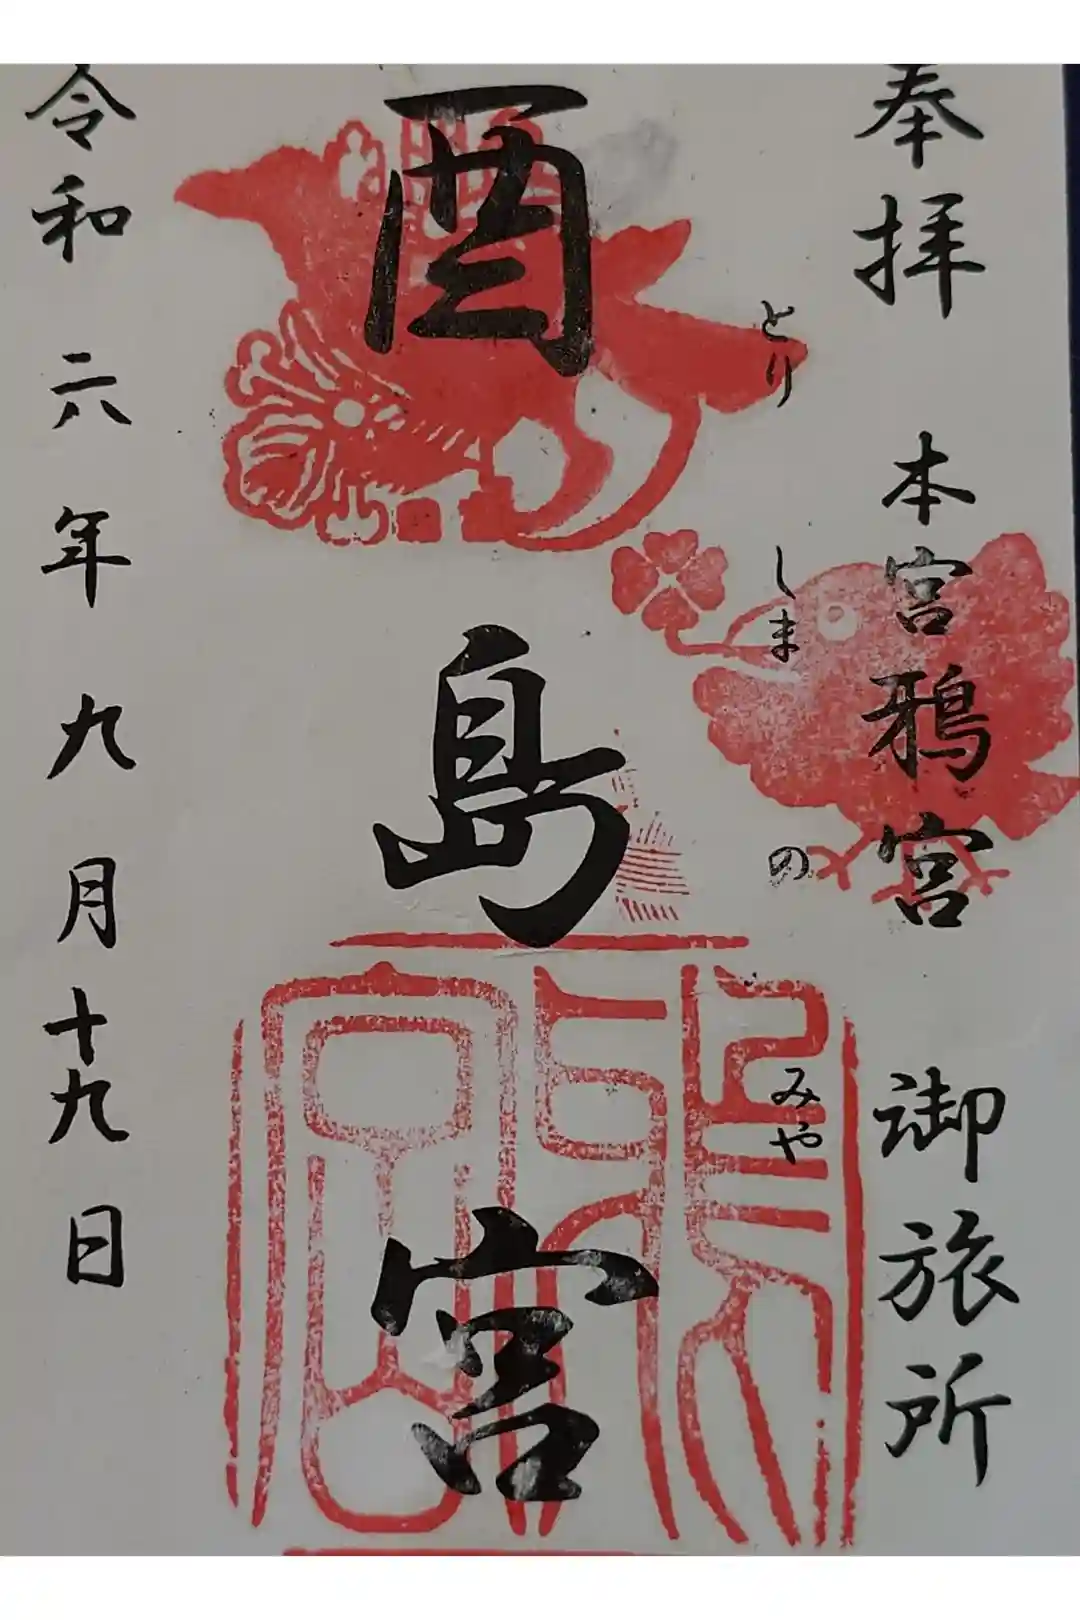 奉拝 本宮鴉宮 御旅所
とり しま の みや
酉島宮
令和六年九月十九日